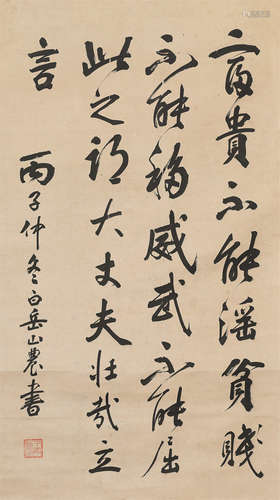 富貴不能淫貧賤
不能移威武不能屈
此之謂大丈夫壯哉立
言
丙子仲冬白岳山農書